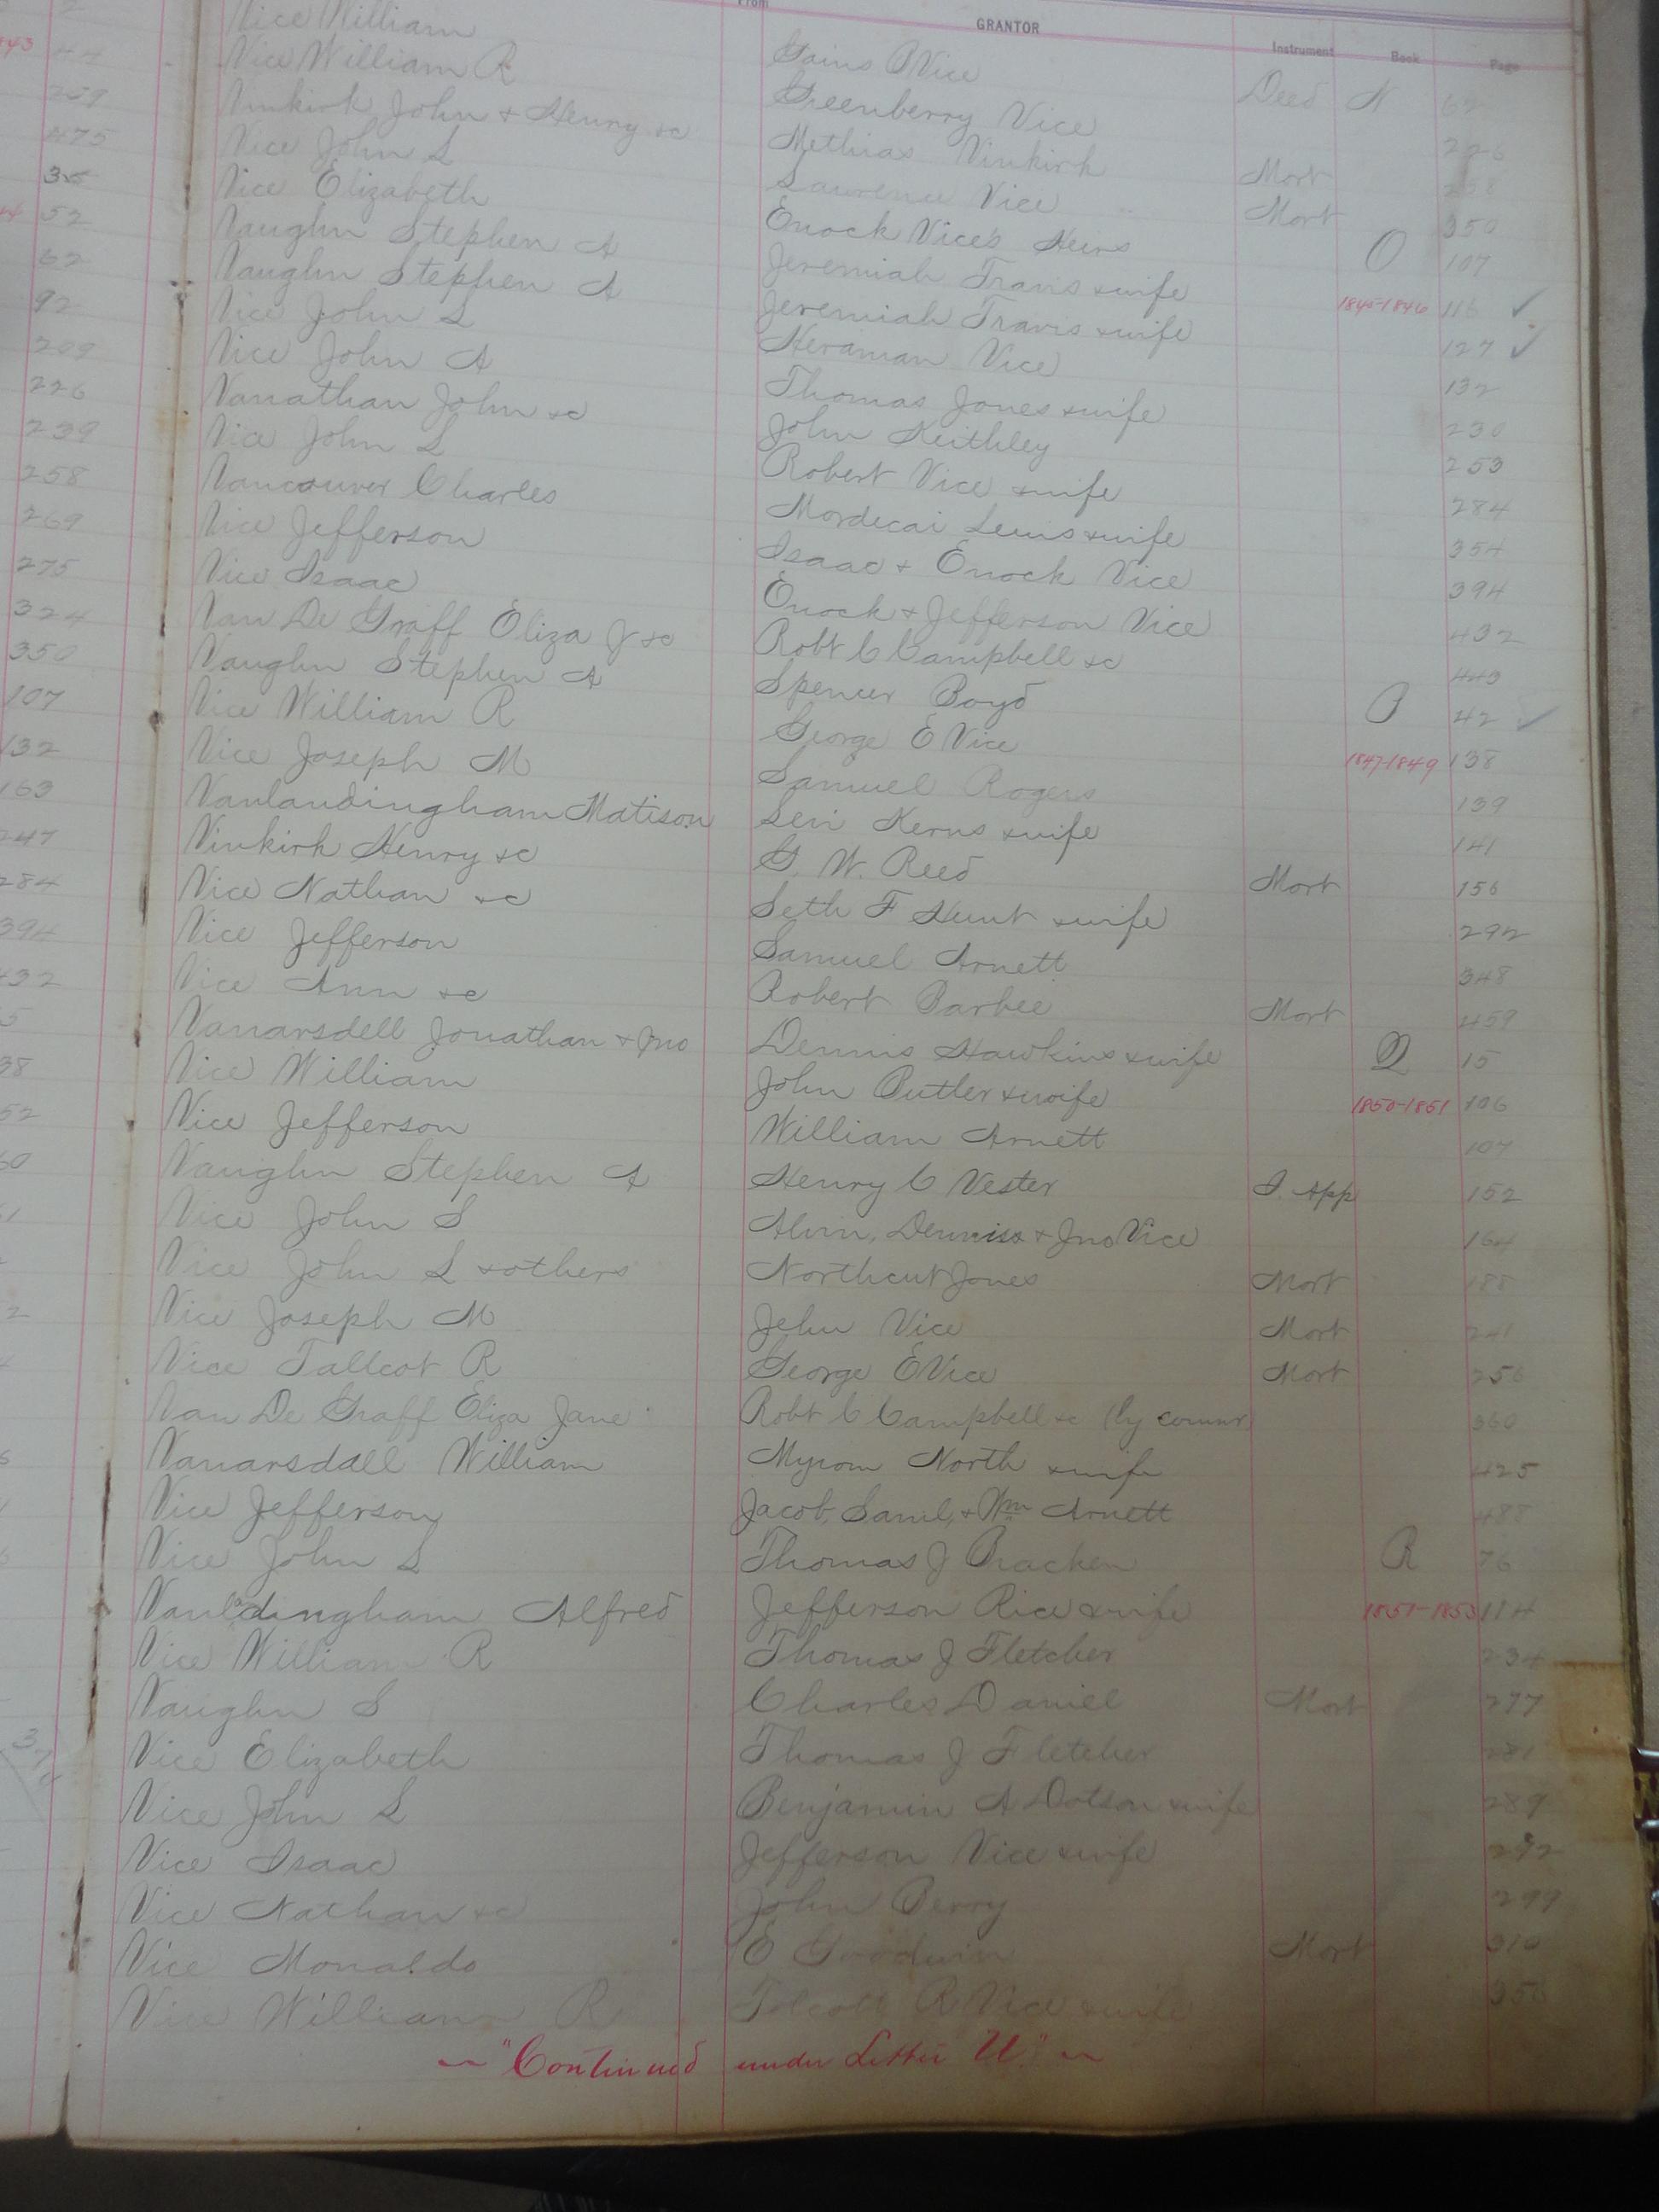 2
443 44
209
475
35
44 52
62
92
209
226
239
258
269
275
324
350
107
132
163
247
284
394
432
From GRANTOR Instrument Book Page
Vice William Gains B Vice Deed N 62
Vice William R Greenberry Vice 226
Vinkirk John & Henry &c Methias Vinkirk Mort 258
Vice John L Lawrence Vice Mort 350
Vice Elizabeth Enock Vice's Heirs O 107
Vaughn Stephen A Jeremiah Travis & wife 1845-1846 116 ✓
Vaughn Stephen A Jeremiah Travis & wife 127 ✓
Vice John L Heraman Vice 132
Vice John A Thomas Jones & wife 230
Vanathan John &c John Keithley 253
Vice John L Robert Vice & wife 284
Vancouver Charles Mordecai Lewis & wife 354
Vice Jefferson Isaac & Enock Vice 394
Vice Isaac Enock & Jefferson Vice 432
Van De Graff Eliza J &c Robt C Campbell &c 443
Vaughn Stephen A Spencer Boyd P 42 ✓
Vice William R George E Vice 1847-1849 138
Vice Joseph M Samuel Rogers 139
Vanlandingham Matison Levi Kerns & wife 141
Vinkirk Henry &c G. W. Reed Mort 156
Vice Nathan &c Seth F Hunt & wife 292
Vice Jefferson Samuel Arnett 348
Vice Ann &c Robert Barbee Mort 459
Vanarsdell Jonathan & Jno Dennis Hawkins & wife Q 15
Vice William John Butler & wife 1850-1851 106
Vice Jefferson William Arnett 107
Vaughn Stephen A Henry C Vester I. App 152
Vice John S Alvin, Denniss & Jno Vice 164
Vice John L & others Northcut Jones Mort 188
Vice Joseph M Jehu Vice Mort 241
Vice Tallcot R George E Vice Mort 256
Van De Graff Eliza Jane Robt C Campbell &c (by comnr) 360
Vanarsdall William Myrom North & wife 425
Vice Jefferson Jacob, Saml, & Wm Arnett 488
Vice John L Thomas J Bracken R 76
Vanladingham Alfred Jefferson Rice & wife 1851-1853 114
Vice William R Thomas J Fletcher 234
Vaughn S Charles Daniel Mort 277
Vice Elizabeth Thomas J Fletcher 281
Vice John L Benjamin A Dotson & wife 289
Vice Isaac Jefferson Vice & wife 292
Vice Nathan &c John Berry 299
Vice Monaldo E Goodwin Mort 310
Vice William R Tolcott R Vice & wife 350
"Continued under Letter U"